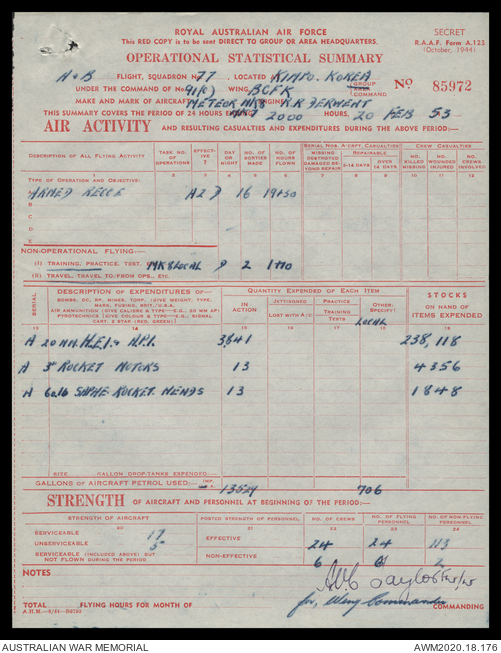 ROYAL AUSTRALIAN AIR FORCE
This RED COPY is to be sent DIRECT TO GROUP OR AREA HEADQUARTERS.
SECRET
R.A.A.F. Form A.125
(October, 1944)
OPERATIONAL STATISTICAL SUMMARY
A+B FLIGHT, SQUADRON No 77, LOCATED KIMPO. KOREA
UNDER THE COMMAND OF No 91(c) WING, BCFK GROUP COMMAND
No 85972
MAKE AND MARK OF AIRCRAFT METEOR MK8 ENGINE R.R DERWENT
THIS SUMMARY COVERS THE PERIOD OF 24 HOURS ENDING 2000 HOURS, 20 FEB 53
AIR ACTIVITY AND RESULTING CASUALTIES AND EXPENDITURES DURING THE ABOVE PERIOD:—
DESCRIPTION OF ALL FLYING ACTIVITY
TASK NO. OF OPERATIONS
EFFECTIVE ?
DAY OR NIGHT
NO. OF SORTIES MADE
NO. OF HOURS FLOWN
SERIAL NOS. A-CRFT. CASUALTIES
CREW CASUALTIES
MISSING DESTROYED DAMAGED BEYOND REPAIR
REPAIRABLE
6-14 DAYS
OVER 14 DAYS
NO. KILLED MISSING
NO. WOUNDED INJURED
NO. CREWS INVOLVED
1 2 3 4 5 6 7 8 9 10 11 12
TYPE OF OPERATION AND OBJECTIVE:
ARMED RECCE A2 D 16 19+50
B
C
D
E
NON-OPERATIONAL FLYING:—
(I) TRAINING, PRACTICE, TEST. MK8 LOCAL D 2 1+10
(II) TRAVEL, TRAVEL TO/FROM OPS., ETC.
SERIAL
DESCRIPTION OF EXPENDITURES OF—
BOMBS, DC, RP, MINES, TORP. (GIVE WEIGHT, TYPE, MARK, FUSING, BRIT./U.S.A.
AIR AMMUNITION (GIVE CALIBRE & TYPE—E.G., 20 MM AP)
PYROTECHNICS (GIVE COLOUR & TYPE—E.G., SIGNAL CART, 2 STAR (RED, GREEN))
QUANTITY EXPENDED OF EACH ITEM
IN ACTION
JETTISONED
LOST WITH A/C
PRACTICE
TRAINING
TESTS
OTHER: SPECIFY!
LOCAL
STOCKS
ON HAND OF ITEMS EXPENDED
13 14 15 16 17 18 19
A 20 MM. H.E.I. & A.P.I. 3841 238,118
A 3" ROCKET MOTORS 13 4356
A 60lb SAPHE ROCKET HEADS 13 1848
SIZE GALLON DROP-TANKS EXPENDED—
GALLONS OF AIRCRAFT PETROL USED:— IMP. 706
STRENGTH OF AIRCRAFT AND PERSONNEL AT BEGINNING OF THE PERIOD:—
STRENGTH OF AIRCRAFT
POSTED STRENGTH OF PERSONNEL
NO. OF CREWS
NO. OF FLYING PERSONNEL
NO. OF NON-FLYING PERSONNEL
20 21 22 23 24
SERVICEABLE 17
UNSERVICEABLE 5
SERVICEABLE (INCLUDED ABOVE) BUT NOT FLOWN DURING THE PERIOD
EFFECTIVE 24 24 113
NON-EFFECTIVE 6 2
NOTES
for, Wing Commander COMMANDING
TOTAL FLYING HOURS FOR MONTH OF
AUSTRALIAN WAR MEMORIAL
AWM2020.18.176